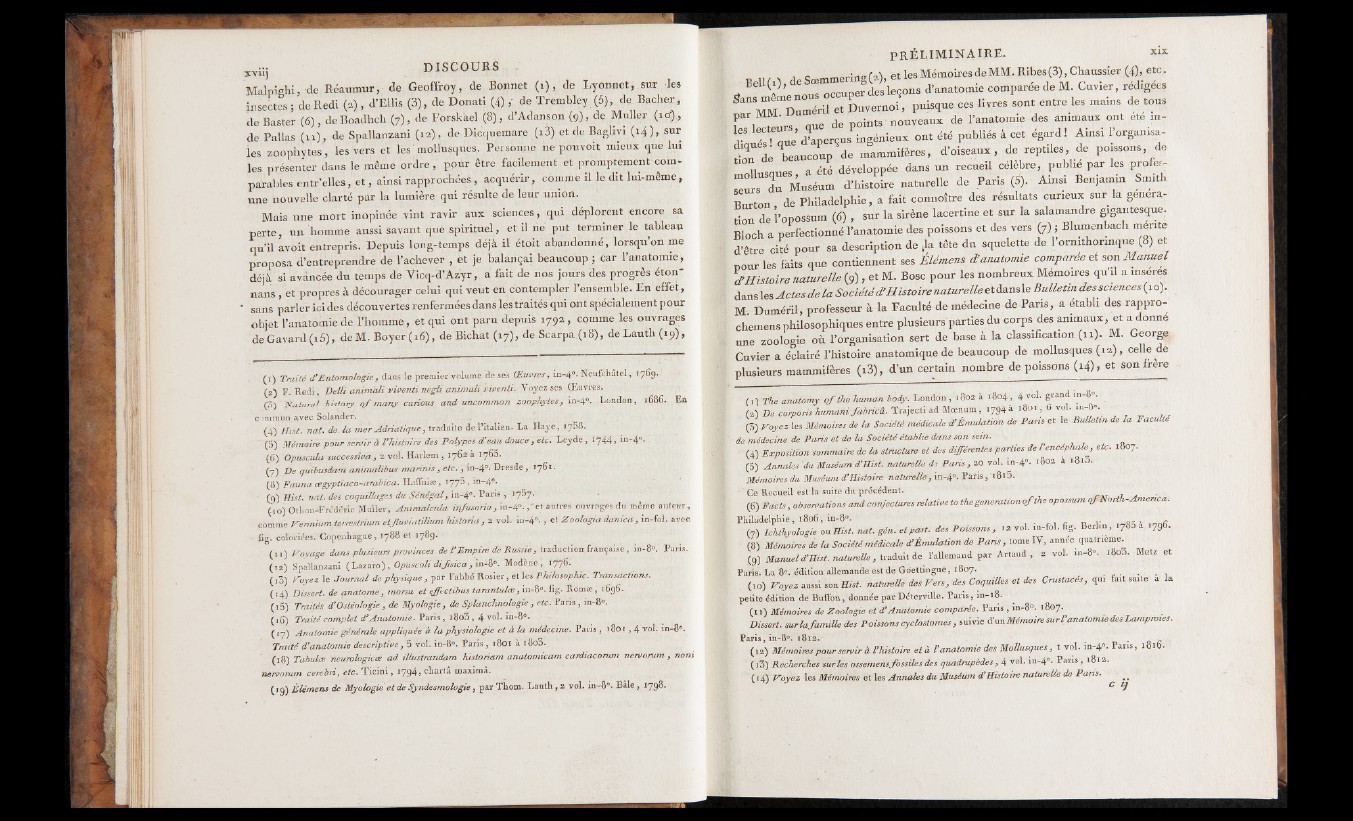 xviij DISCOURS
Malpighi, de Réaumur, de Geoffroy, de Bonnet (1), de Lyonnet, sur les
insectes ; de Redi (2), d'Ellis (3), de Donati (4), de Trembley (5), de Bacher,
de Baster (6), de Boadhch (7), de Forskael (8), d'Adanson (9), de Muller (10),
de Pallas (11), de Spallanzani (12), de Dicquemare (13) et de Baglivi (14), sur
les zoophytes, les vers et les mollusques. Personne ne pouvoit mieux que lui
les présenter dans le même ordre, pour être facilement et promptement com-
parables entr'elles, et, ainsi rapprochées, acquérir, comme il le dit lui-même,
une nouvelle clarté par la lumière qui résulte de leur union.
Mais une mort inopinée vint ravir aux sciences, qui déplorent encore sa
perte, un homme aussi savant que spirituel, et il ne put terminer le tableau
qu'il avoit entrepris. Depuis long-temps déjà il étoit abandonné, lorsqu'on me
proposa d'entreprendre de l'achever, et je balançai beaucoup ; car l'anatomie,
déjà si avancée du temps de Vicq-d'Azyr, a fait de nos jours des progrès éton-
nans, et propres à décourager celui qui veut en contempler l'ensemble. En effet,
sans parler ici des découvertes renfermées dans les traités qui ont spécialement pour
objet l'anatomie de l'homme, et qui ont paru depuis 1792, comme les ouvrages
de Gavard (15), de M. Boyer (16), de Bichat (17), de Scarpa (18), de Lauth (19),
(1) Traité d'Entomologie, dans le premier volume de ses Œuvres, in-4°. Neufchâtel, 1769.
(2) F. Redi, Delli animali viventi negli animali viventi. Voyez ses Œuvres.
(3) Natural history of many curious and uncommon zoophytes, in-4°. London, 1686. En
commun avec Solander.
(4) Hist. nat. de la mer Adriatique, traduite de l'italien. La Haye, 1758.
(5) Mémoire pour servir à l'histoire des Polypes d'eau douce, etc. Leyde, 1744, in-4°.
(6) Opuscula successiva, 2 vol. Harlem, 1762 à 1765.
(7) De quibusdam animalibus marinis, etc., in-4°. Dresde, 1761.
(8) Fauna ægyptiaco-arabica. Haffniæ, 1775, in-4°.
(9) Hist. nat. des coquillages du Sénégal, in-4°. Paris, 1757.
(10) Othon-Frédéric Muller, Animalcula infusoria, in-4°., et autres ouvrages du même auteur,
comme Vermium terrestrium et fluviatilium historia, 2 vol. in-4°., et Zoologia danica, in-fol. avec
fig. coloriées. Copenhague, 1788 et 1789.
(11) Voyage dans plusieurs provinces de l'Empire de Russie, traduction française, in-8°. Paris.
(12) Spallanzani (Lazaro), Opuscoli di fisica, in-8°. Modène, 1776.
(13) Voyez le Journal de physique, par l'abbé Rosier, et les Philosophic. Transactions.
(14) Dissert. de anatome, morsu et effectibus tarantulæ, in-8°. fig. Romæ, 1696.
(15) Traités d'Ostéologie, de Myologie, de Splanchnologie, etc. Paris, in-8°.
(16) Traité complet d'Anatomie. Paris, 1803, 4 vol. in-8°.
(17) Anatomie générale appliquée à la physiologie et à la médecine. Paris, 1801, 4 vol. in-8°.
Traité d'anatomie descriptive, 5 vol. in-8°. Paris, 1801 à 1803.
(18) Tabulæ neurologicæ ad illustrandam historiam anatomicam cardiacorum nervorum, noni
nervorum cerebri, etc. Ticini, 1794, chartâ maximâ.
(19) Élémens de Myologie et de Syndesmologie, par Thom. Lauth, 2 vol. in-8°. Bâle, 1798.
PRÉLIMINAIRE. xix
Bell (1), de Sœmmering (2), et les Mémoires de MM. Ribes (3), Chaussier (4), etc.
Sans même nous occuper des leçons d'anatomie comparée de M. Cuvier, rédigées
par MM. Duméril et Duvernoi, puisque ces livres sont entre les mains de tous
les lecteurs, que de points nouveaux de l'anatomie des animaux ont été in-
diqués ! que d'aperçus ingénieux ont été publiés à cet égard ! Ainsi l'organisa-
tion de beaucoup de mammifères, d'oiseaux, de reptiles, de poissons, de
mollusques, a été développée dans un recueil célèbre, publié par les profes-
seurs du Muséum d'histoire naturelle de Paris (5). Ainsi Benjamin Smith
Burton, de Philadelphie, a fait connoître des résultats curieux sur la généra-
tion de l'opossum (6), sur la sirène lacertine et sur la salamandre gigantesque.
Bloch a perfectionné l'anatomie des poissons et des vers (7) ; Blumenbach mérite
d'être cité pour sa description de la tête du squelette de l'ornithorinque (8) et
pour les faits que contiennent ses Élémens d'anatomie comparée et son Manuel
d'Histoire naturelle (9), et M. Bosc pour les nombreux Mémoires qu'il a insérés
dans les Actes de la Société d'Histoire naturelle et dans le Bulletin des sciences (10).
M. Duméril, professeur à la Faculté de médecine de Paris, a établi des rappro-
chemens philosophiques entre plusieurs parties du corps des animaux, et a donné
une zoologie où l'organisation sert de base à la classification (11). M. George
Cuvier a éclairé l'histoire anatomique de beaucoup de mollusques (12), celle de
plusieurs mammifères (13), d'un certain nombre de poissons (14), et son frère
(1) The anatomy of the human body. London, 1802 à 1804, 4 vol. grand in-8°.
(2) De corporis humani fabricâ. Trajecti ad Mœnum, 1794 à 1801, 6 vol. in-8°.
(3) Voyez les Mémoires de la Société médicale d'Émulation de Paris et le Bulletin de la Faculté
de médecine de Paris et de la Société établie dans son sein.
(4) Exposition sommaire de la structure et des différentes parties de l'encéphale, etc. 1807.
(5) Annales du Muséum d'Hist. naturelle de Paris, 20 vol. in-4°. 1802 à 1813.
Mémoires du Muséum d'Histoire naturelle, in-4°. Paris, 1815.
Ce Recueil est la suite du précédent.
(6) Facts, observations and conjectures relative to the generation of the opossum of North-America.
Philadelphie, 1806, in-8°.
(7) Ichthyologie ou Hist. nat. gén. et part. des Poissons, 12 vol. in-fol. fig. Berlin, 1785 à 1796.
(8) Mémoires de la Société médicale d'Émulation de Paris, tome IV, année quatrième.
(9) Manuel d'Hist. naturelle, traduit de l'allemand par Artaud, 2 vol. in-8°. 1803. Metz et
Paris. La 8e. édition allemande est de Goettingue, 1807.
(10) Voyez aussi son Hist. naturelle des Vers, des Coquilles et des Crustacés, qui fait suite à la
petite édition de Buffon, donnée par Déterville. Paris, in-18.
(11) Mémoires de Zoologie et d'Anatomie comparée. Paris, in-8°. 1807.
Dissert. sur la famille des Poissons cyclostomes, suivie d'un Mémoire sur l'anatomie des Lamproies.
Paris, in-8°. 1812.
(12) Mémoires pour servir à l'histoire et à l'anatomie des Mollusques, 1 vol. in-4°. Paris, 1816.
(13) Recherches sur les ossemens fossiles des quadrupèdes, 4 vol. in-4°. Paris, 1812.
(14) Voyez les Mémoires et les Annales du Muséum d'Histoire naturelle de Paris.
c ij